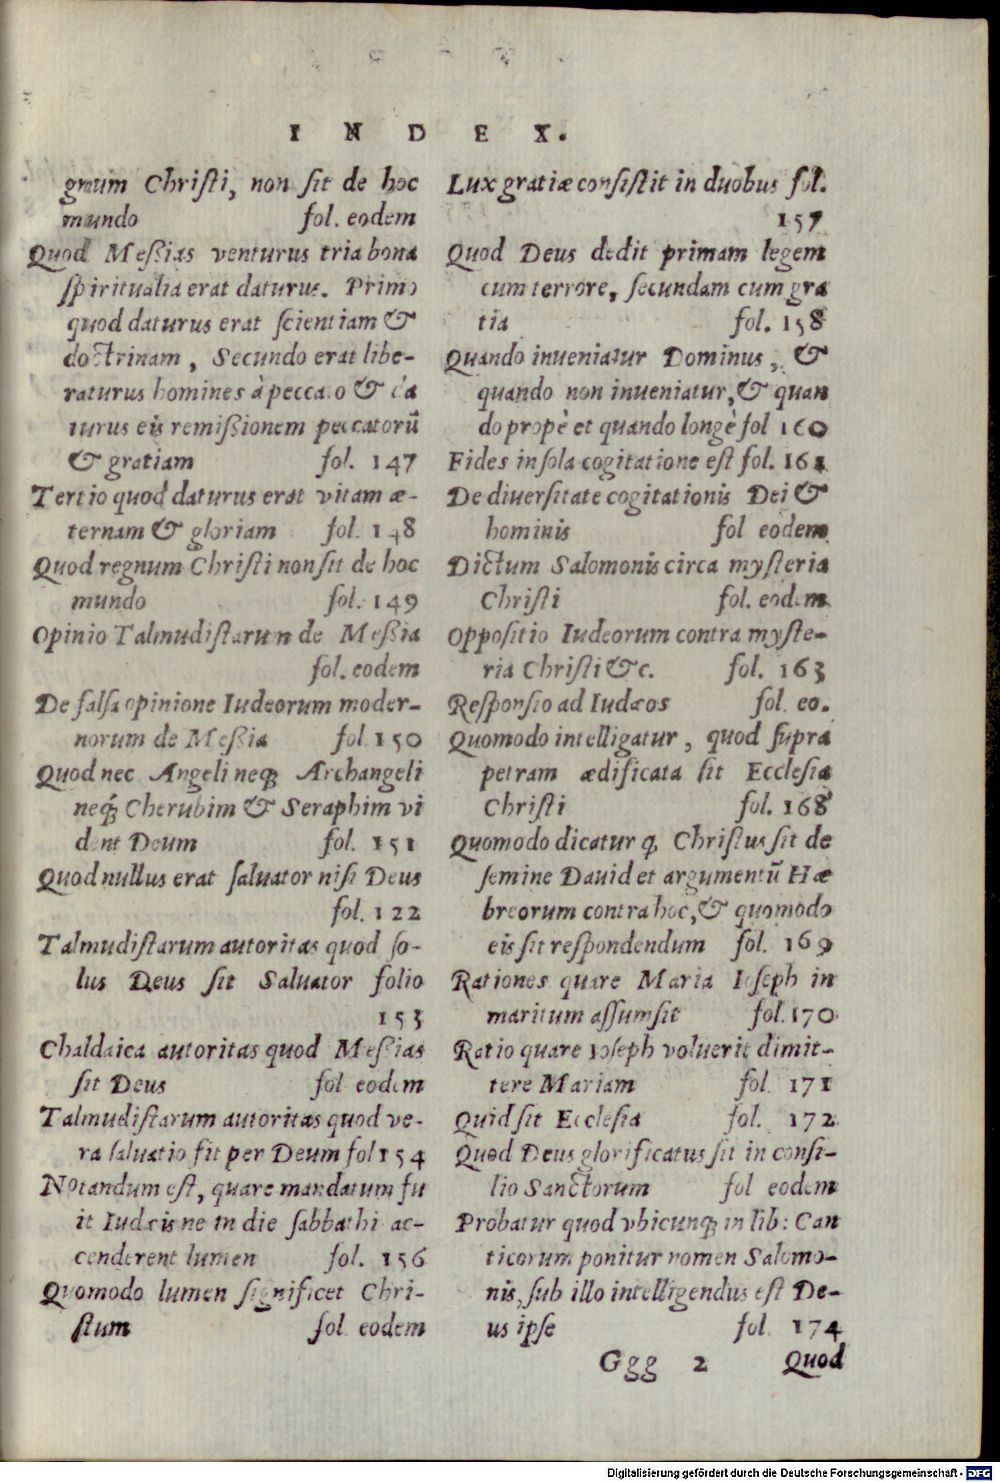 INDEX.
gnum Christi, non sit de hoc
mundo fol. eodem
Quod Meßias venturus tria bona
spiritualia erat daturus. Primo
quod daturus erat scientiam &
doctrinam, Secundo erat libe-
raturus homines à peccato & da
turus eis remißionem peccatorũ
& gratiam fol. 147
Tertio quod daturus erat vitam æ-
ternam & gloriam fol. 148
Quod regnum Christi non sit de hoc
mundo fol. 149
Opinio Talmudistarum de Meßia
fol. eodem
De falsa opinione Iudeorum moder-
norum de Meßia fol 150
Quod nec Angeli neqꝫ Archangeli
neqꝫ Cherubim & Seraphim vi
dent Deum fol. 151
Quod nullus erat saluator nisi Deus
fol. 122
Talmudistarum autoritas quod so-
lus Deus sit Saluator folio
153
Chaldaica autoritas quod Meßias
sit Deus fol eodem
Talmudistarum autoritas quod ve-
ra saluatio fit per Deum fol 154
Notandum est, quare mandatum fu
it Iudæis ne in die sabbathi ac-
cenderent lumen fol. 156
Quomodo lumen significet Chri-
stum fol eodem
Lux gratiæ consistit in duobus fol.
157
Quod Deus dedit primam legem
cum terrore, secundam cum gra
tia fol. 158
Quando inueniatur Dominus, &
quando non inueniatur, & quan
do propè et quando longè fol 160
Fides in sola cogitatione est fol. 161
De diuersitate cogitationis Dei &
hominis fol eodem
Dictum Salomonis circa mysteria
Christi fol. eodem
Oppositio Iudeorum contra myste-
ria Christi &c. fol. 163
Responsio ad Iudæos fol. eo.
Quomodo intelligatur, quod supra
petram ædificata sit Ecclesia
Christi fol. 168
Quomodo dicatur q̃ Christus sit de
semine Dauid et argumentũ Hæ
breorum contra hoc, & quomodo
eis sit respondendum fol. 169
Rationes quare Maria Ioseph in
maritum assumsit fol. 170
Ratio quare Ioseph voluerit dimit-
tere Mariam fol. 171
Quid sit Ecclesia fol. 172
Quod Deus glorificatus sit in consi-
lio Sanctorum fol eodem
Probatur quod vbicunqꝫ in lib: Can
ticorum ponitur nomen Salomo-
nis, sub illo intelligendus est De-
us ipse fol. 174
Ggg 2 Quod
Digitalisierung gefördert durch die Deutsche Forschungsgemeinschaft - DFG